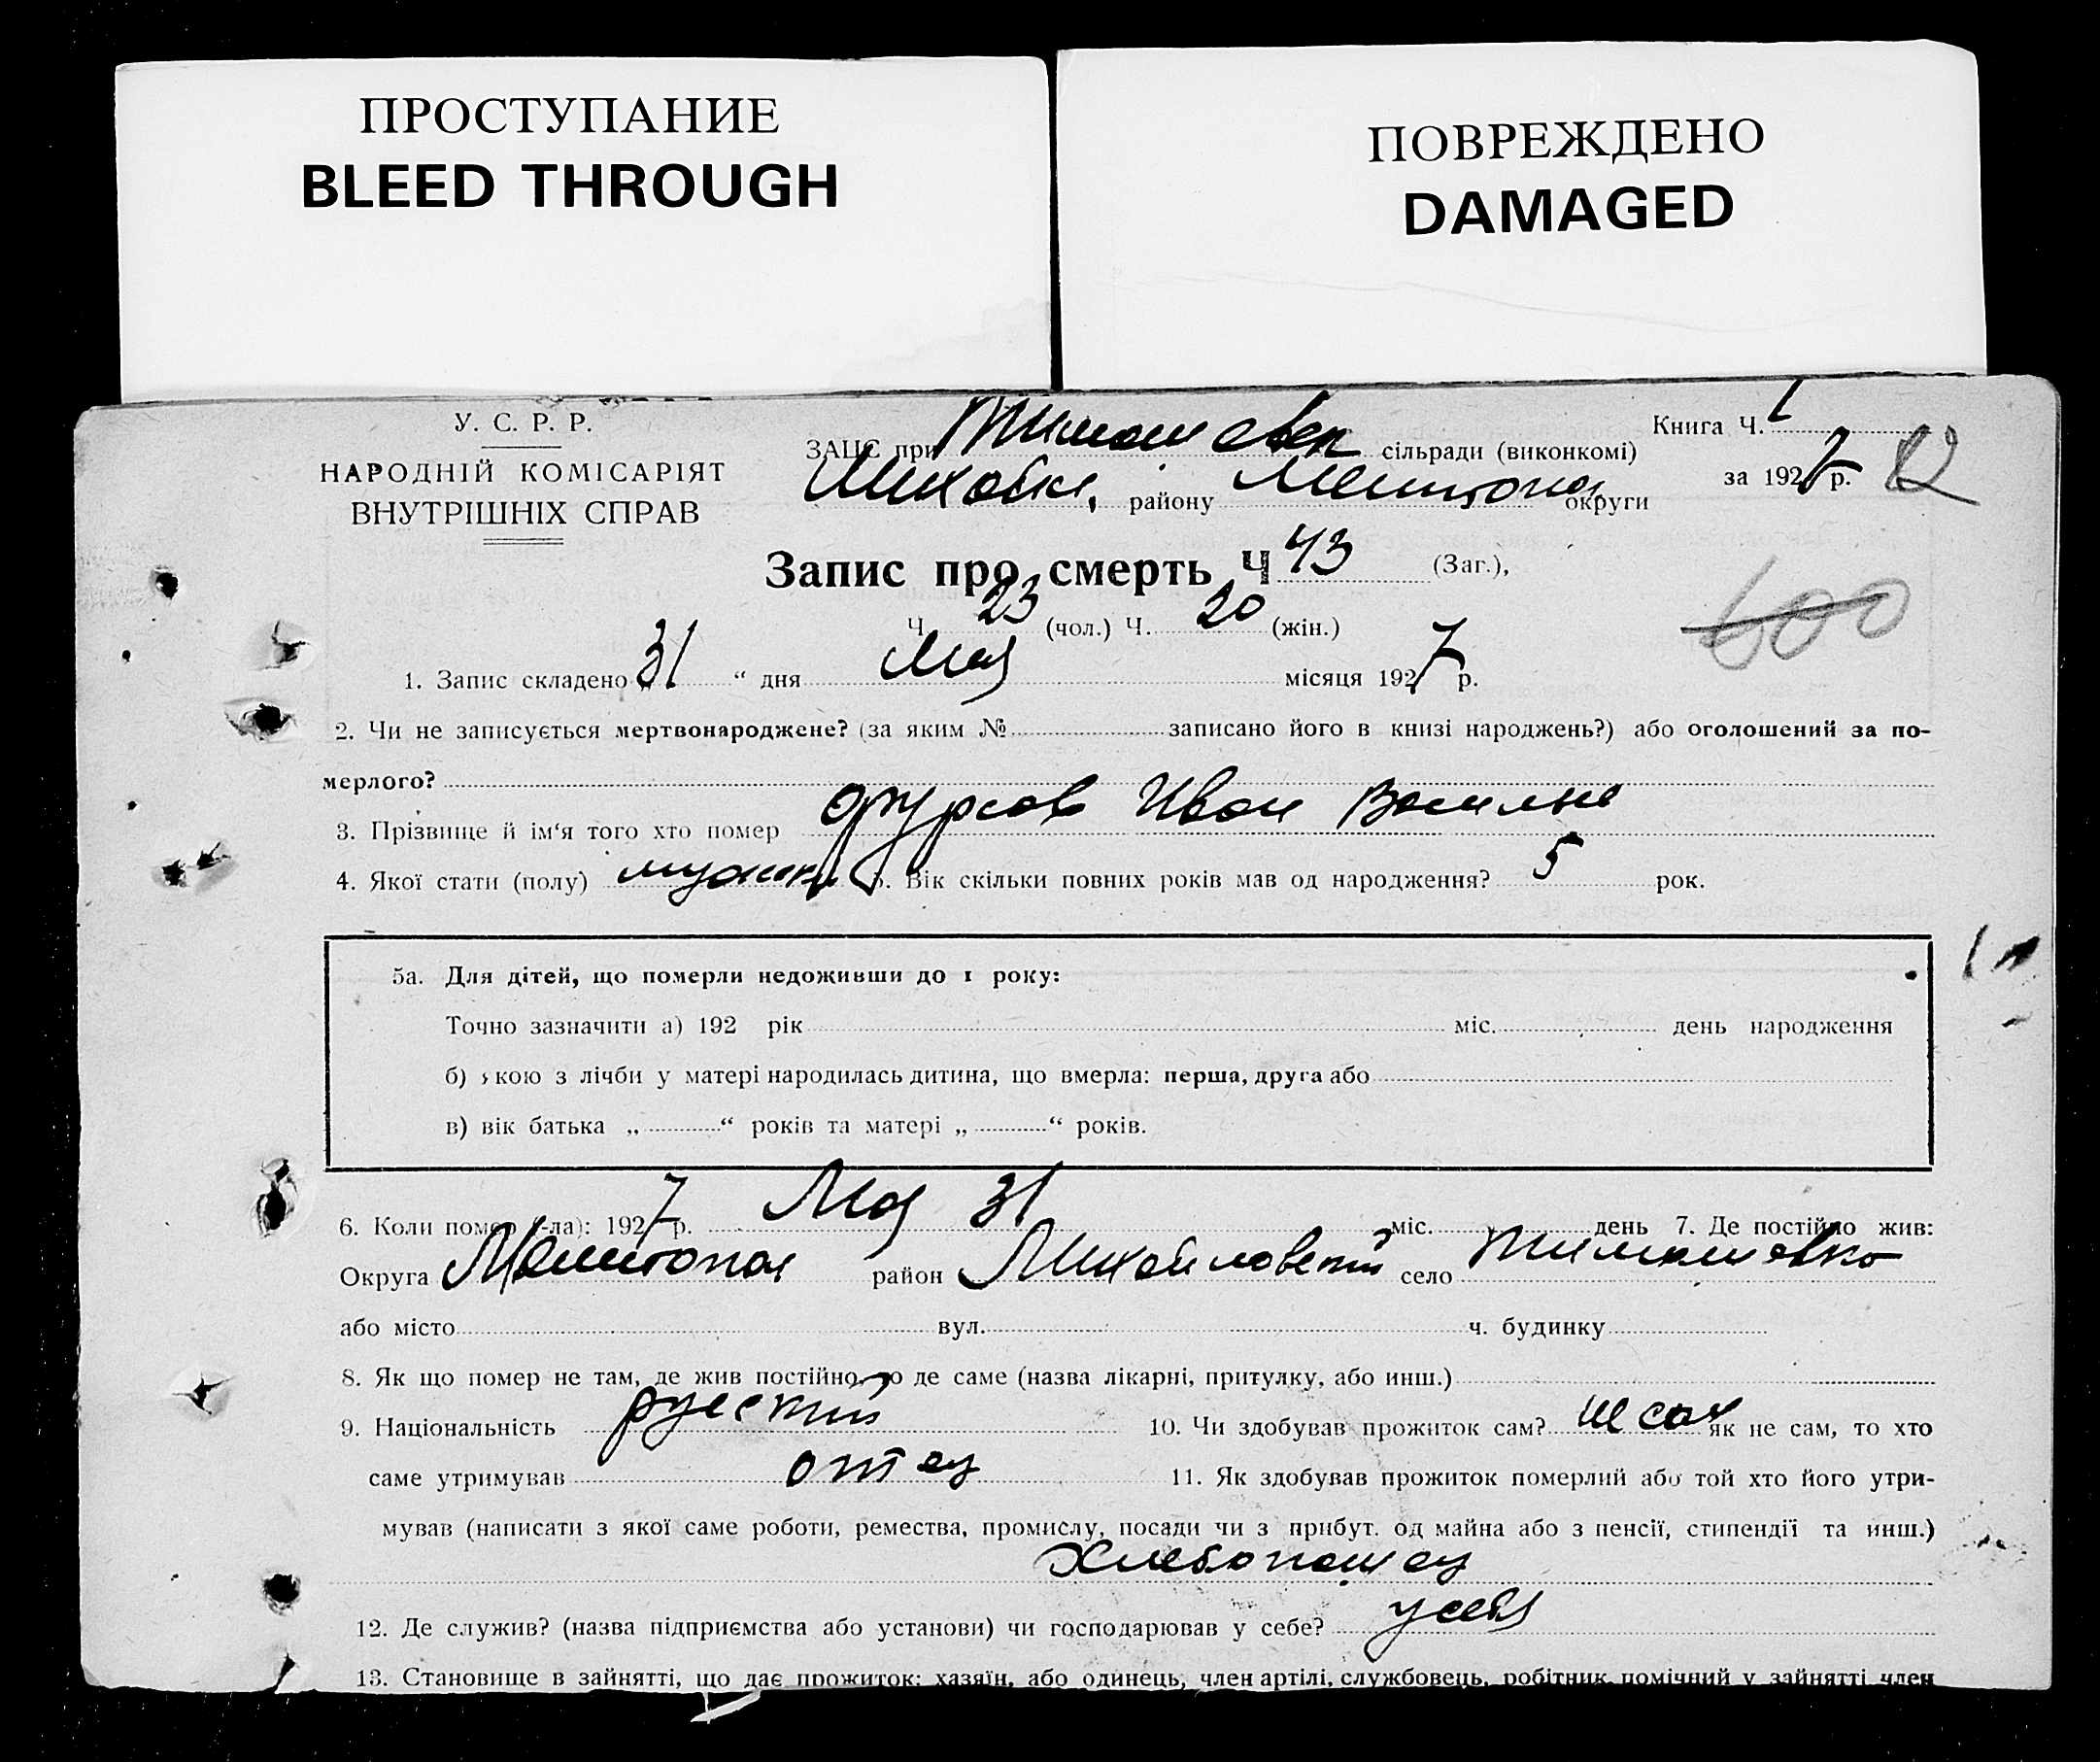 ПРОСТУПАНИЕ
BLEED THROUGH
ПОВРЕЖДЕНО
DAMAGED
У. С. Р. Р.
НАРОДНІЙ КОМІСАРІЯТ
ВНУТРІШНІХ СПРАВ
Книга Ч. 1
ЗАЦС при Тимошевск сільради (виконкомі)
за 1927 р. 82
Михайл. району Мелитопол округи
Запис про смерть Ч 43 (Заг.),
Ч. 23 (чол.) Ч. 20 (жін.)
600
1. Запис складено „31“ дня Мая місяця 1927 р.
2. Чи не записується мертвонароджене? (за яким № записано його в книзі народжень?) або оголошений за по-
мерлого?
3. Прізвище й ім'я того хто помер Фурсов Иван Василье
4. Якої стати (полу) мужск 5. Вік скільки повних років мав од народження? 5 рок.
5а. Для дітей, що померли недоживши до 1 року:
Точно зазначити а) 192 рік міс. день народження
б) якою з лічби у матері народилась дитина, що вмерла: перша, друга або
в) вік батька „ “ років та матері „ “ років.
6. Коли помер (-ла): 1927 р. Мая 31 міс. день 7. Де постійно жив:
Округа Мелитопол район Михайловский село Тимошевка
або місто вул. ч. будинку
8. Як що помер не там, де жив постійно, то де саме (назва лікарні, притулку, або инш.)
9. Національність русский 10. Чи здобував прожиток сам? не сам як не сам, то хто
саме утримував отец 11. Як здобував прожиток померлий або той хто його утри-
мував (написати з якої саме роботи, ремества, промислу, посади чи з прибут. од майна або з пенсії, стипендії та инш.)
Хлебопашец
12. Де служив? (назва підприємства або установи) чи господарював у себе? у себя
13. Становище в зайнятті, що дає прожиток: хазяїн, або одинець, член артілі, службовець, робітник, помічний у зайнятті член